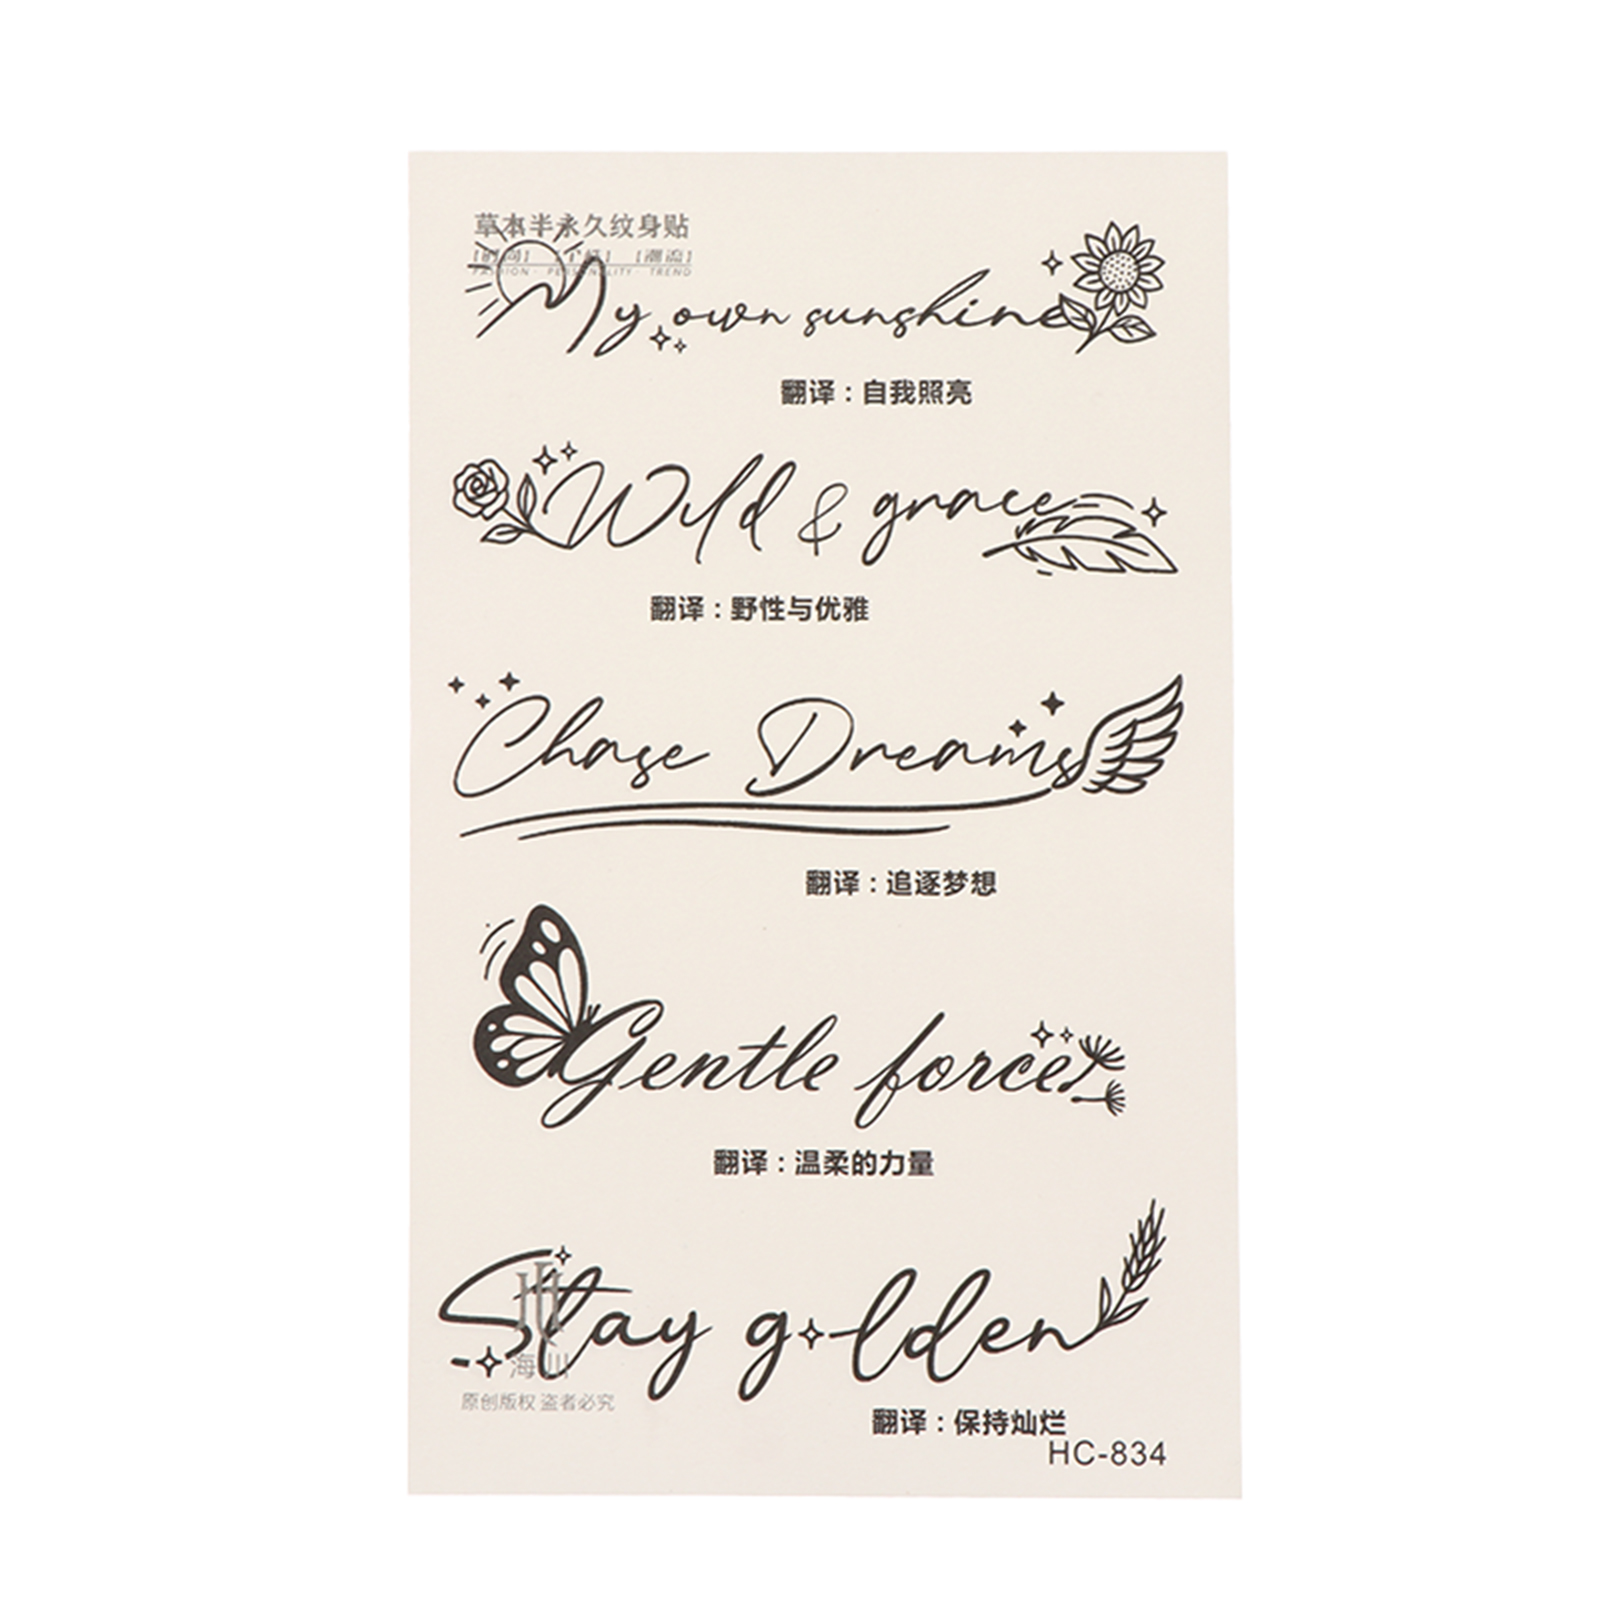 草本半永久纹身贴
[时尚] [个性] [潮流]
FASHION · PERSONALITY · TREND
My own sunshine
翻译：自我照亮
Wild & grace
翻译：野性与优雅
Chase Dreams
翻译：追逐梦想
Gentle force
翻译：温柔的力量
Stay golden
海川
原创版权 盗者必究
翻译：保持灿烂
HC-834